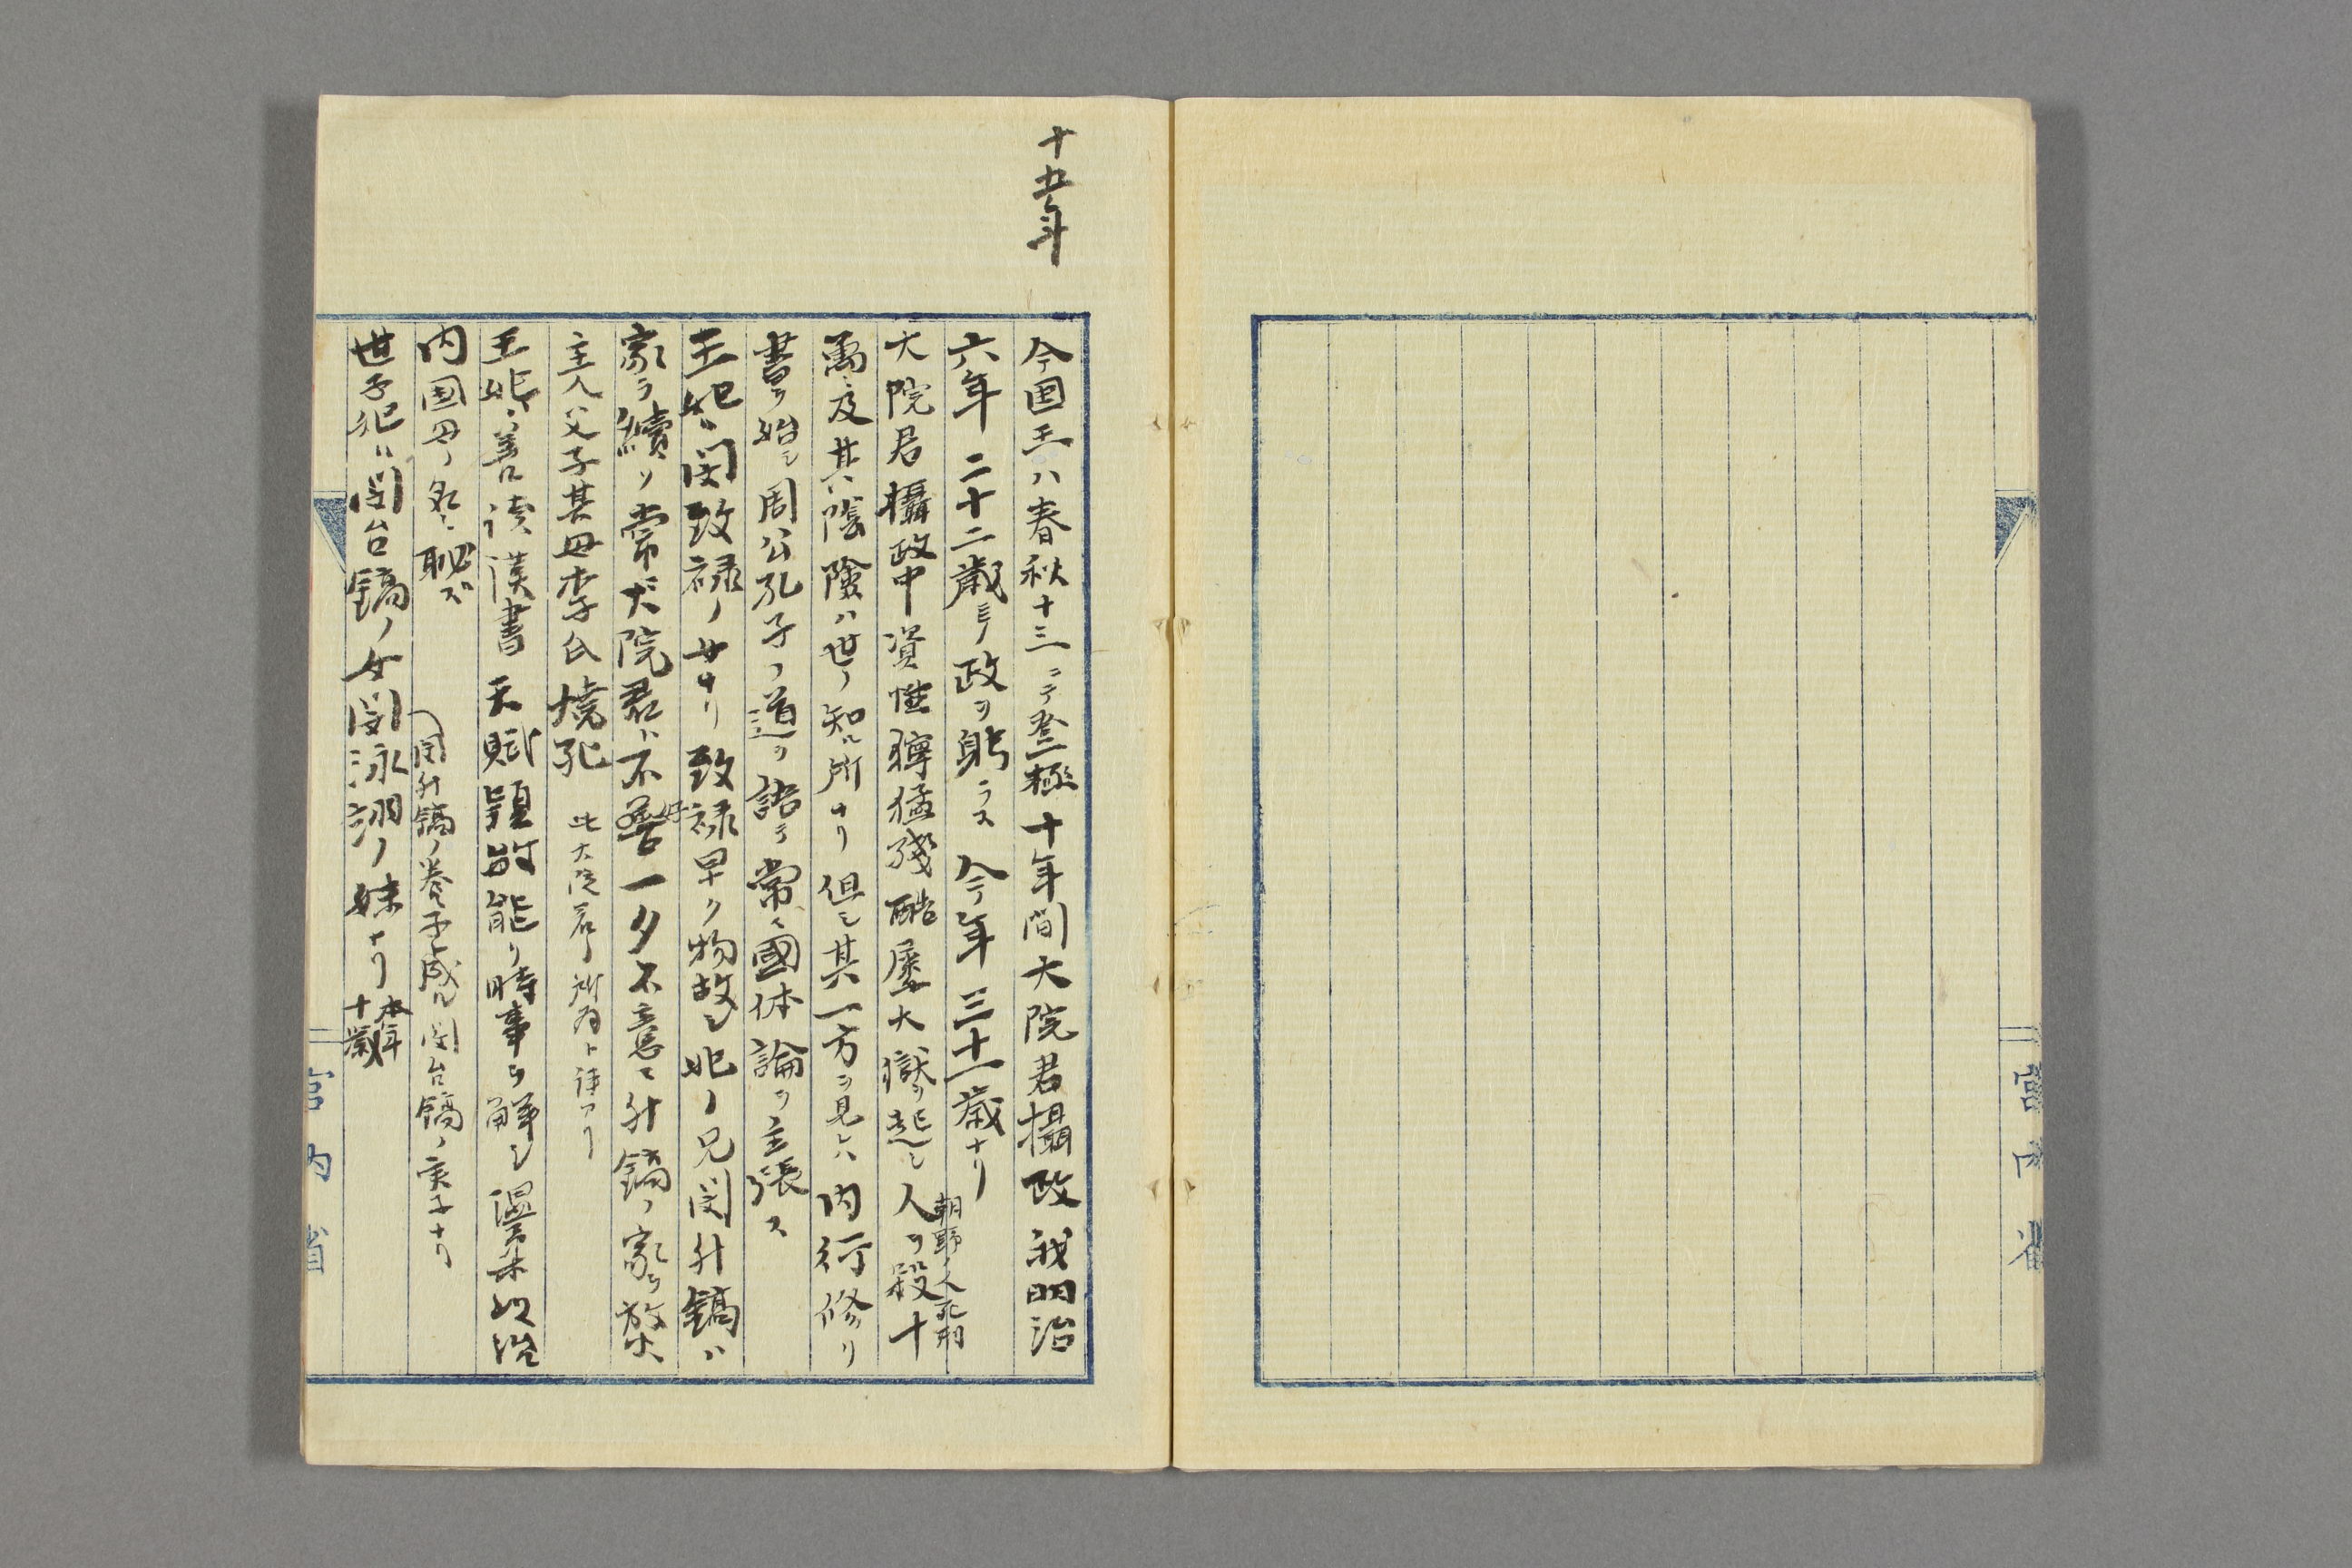 十五年
今国王ハ春秋十三ニテ登極十年間大院君攝政我明治
六年二十二歳ニテ政ヲ躬ラス今年三十一歳ナリ
大院君攝政中資性獰猛残酷屡大獄ヲ起シ人ヲ殺十
朝野ノ人死刑
萬ニ及其陰険ハ世ノ知ル所ナリ但シ其一方ヲ見レハ内行修リ
書ヲ始シ周公孔子ノ道ヲ語テ常ニ國体論ヲ主張ス
王妃ハ閔致禄ノ女ナリ致禄早ク物故シ妃ノ兄閔升鎬ハ
家ラ續リ常ニ大院君ト不善好一夕不意ニ升鎬ノ家ヲ放火
主人父子其母李氏焼死 此大院君ノ所為ト諱アリ
王妃ハ善ク読漢書天賦頴敏能ク時事ヲ解シ温柔以治
内国母ノ名ニ恥ズ
閔升鎬ノ養子ト成ル閔台鎬ノ実子ナリ
世子妃ハ閔台鎬ノ女閔泳翊ノ妹ナリ 本年十歳
宮内省
宮内省